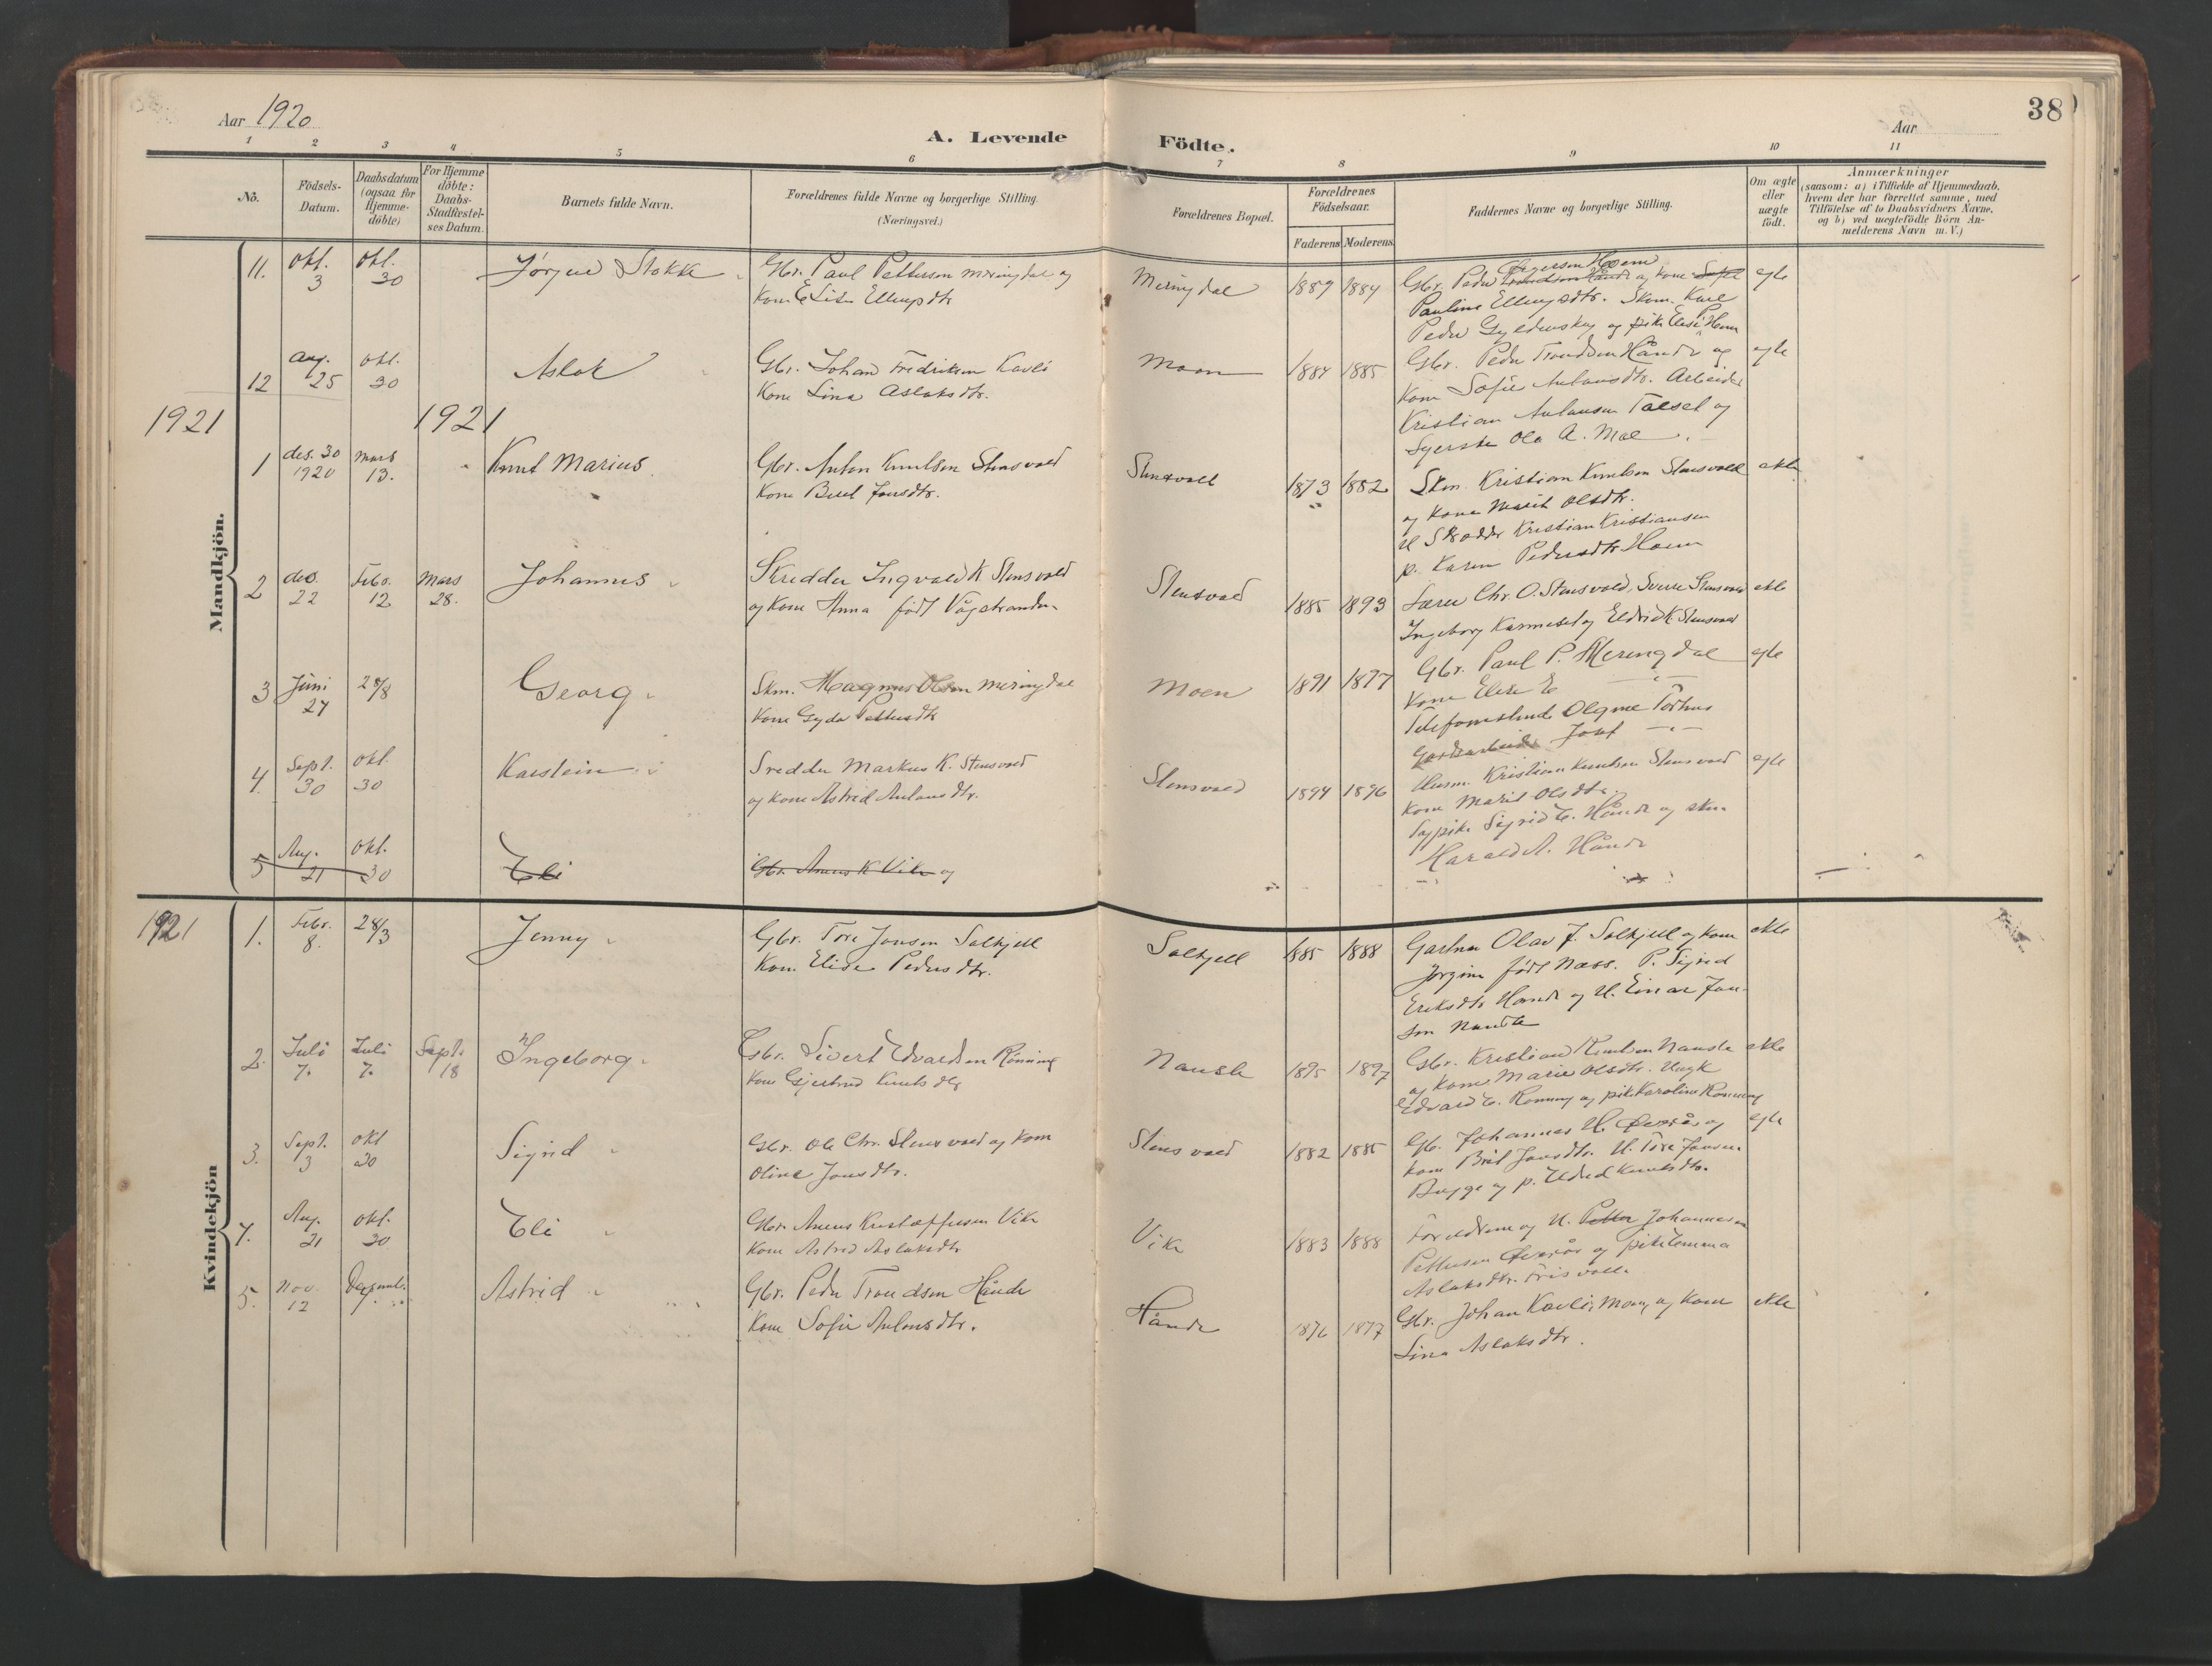 Aar 1920
A. Levende Födte.
Aar
38
1 2 3 4 5 6 7 8 9 10 11
No.
Födsels-
Datum.
Daabsdatum
(ogsaa for
Hjemme-
döbte)
For Hjemme
döbte:
Daabs-
Stadfæstel-
ses Datum.
Barnets fulde Navn.
Forældrenes fulde Navne og borgerlige Stilling.
(Næringsvei.)
Forældrenes Bopæl.
Forældrenes
Födselsaar.
Faderens Moderens
Faddernes Navne og borgerlige Stilling.
Om ægte
eller
uægte
födt.
Anmærkninger
(saasom: a) i Tilfælde af Hjemmedaab,
hvem der har forrettet samme, med
Tilföielse af to Daabsvidners Navne,
og b) ved uægtefödte Börn An-
melderens Navn m. V.)
Mandkjön.
11. Okt. 3 Okt. 30 Jørgen Stokke
Gbr. Paul Petterson Meringdal og
Kone Elise Ellingsdtr
Meringdal 1889 1884
Gbr. Peder og Kone
Pauline Ellingsdtr. Skom. Karl
Peder Gyldenskog og pike Elise Hoem
egte
12 Aug. 25 Okt. 30 Aslak
Gbr. Johan Fredriksen Kavli
Kone Lina Aslaksdtr.
Moen 1884 1885
Gbr. Peder Trondsen Hånde og
Kone Sofie Antonsdtr. Arbeider
Kristian Antonsen Talset og
Syerske Ola A. Moe
egte
1921 1921
1 des. 30 1920 Mars 13. Knut Marius
Gbr. Anton Knutsen Stensvold
Kone Berit Jonsdtr.
Stensvold 1873 1882
Skom. Kristian Knutsen Stensvold
og Kone Marit Olsdtr.
U Skredder Kristian Kristiansen
p. Karen Pedersdtr Hoem
ekte
2 des. 22 Febr. 12 Mars 28. Johannes
Skredder Ingvald K Stensvold
og Kone Anna født Vågstrandn
Stensvold 1885 1893
Lærer Chr. O. Stensvold, Sverre Stensvold
Ingeborg og Eldrid K Stensvold
ekte
3 Juni 27 28/8 Georg
Skm. Magnus Olsen Meringdal
Kone Gyda Pettersdtr
Moen 1891 1897
Gbr. Paul P. Meringdal
Kone Elise E
Olgine Torhus
Gardsarbeider Josef
egte
4. Sept. 30 Okt. 30 Karstein
Sredder Markus K. Stensvold
og Kone Astrid Antonsdtr.
Stensvold 1894 1896
Husm. Kristian Knutsen Stensvold
Kone Marit Olsdtr.
Sypike Sigrid E. Hånde og skm.
Harald A. Hånde
egte
5 Aug. 21 Okt. 30 Eli
Gbr. Anens K Vike og
Kvindekjön
1921
1. Febr. 8. 28/3 Jenny
Gbr. Tore Jonsen Solhjell
Kone Elise Pedersdtr.
Solhjell 1885 1888
Gartner Olav J. Solhjell og Kone
Jørgine født Næss. P. Sigrid
Eriksdtr Hånde og U. Einar Jon-
sen Nauste
ekte
2. Juli 7. Juli 7. Sept. 18 Ingeborg
Gbr. Sivert Edvardsen Rønning
Kone Gjertrud Knutsdtr
Nauste 1895 1897
Gbr. Kristian Knutsen Nauste
og Kone Marie Olsdtr. Ungk
Edvard E. Rønning og pike Karoline Rønning
ekte
3. Sept. 3 Okt 30 Sigrid
Gbr. Ole Chr. Stensvold og Kone
Olina Jonsdtr.
Stensvold 1882 1885
Gb. Johannes H. Øverås og
Kone Brit Jonsdtr. U. Tore Jonsen
Bugge og p. Eldrid Knutsdtr.
egte
4. Aug. 21 Okt. 30 Eli
Gbr. Anens Kristoffersen Vike
Kone Astrid Aslaksdtr
Vike 1883 1888
Foreldrene og U. Petter Johannesen
Pettersen Øverås og pike Lemma
Aslaksdtr. Frisvoll
5. Nov. 12 Astrid
Gbr. Peder Trondsen Hånde
Kone Sofie Antonsdtr.
Hånde 1876 1877
Gbr. Johan Kavli, Moen, og Kone
Lina Aslaksdtr.
ekte